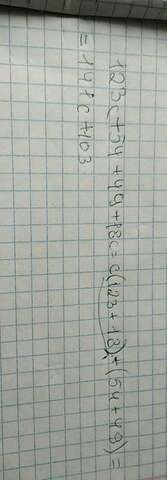 123c+54+49+18c=c(123+18)+(54+49)=
=141c+103